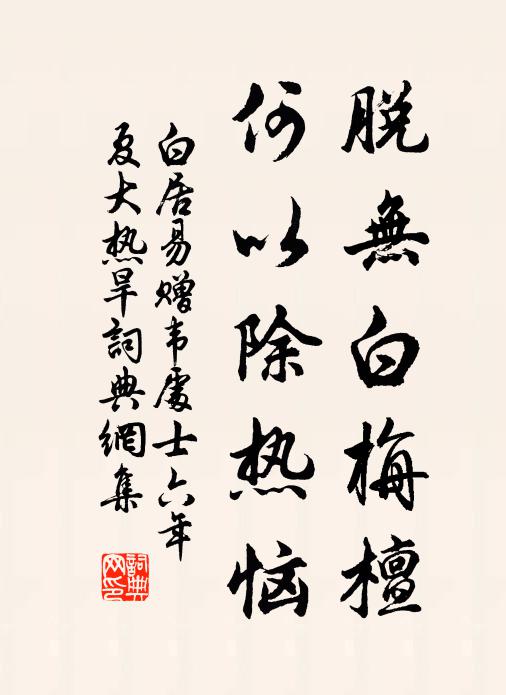 脱無白梅檀
何以除热恼
白居易赠韦處士六年
夏大热旱詞典網集
詞典网印